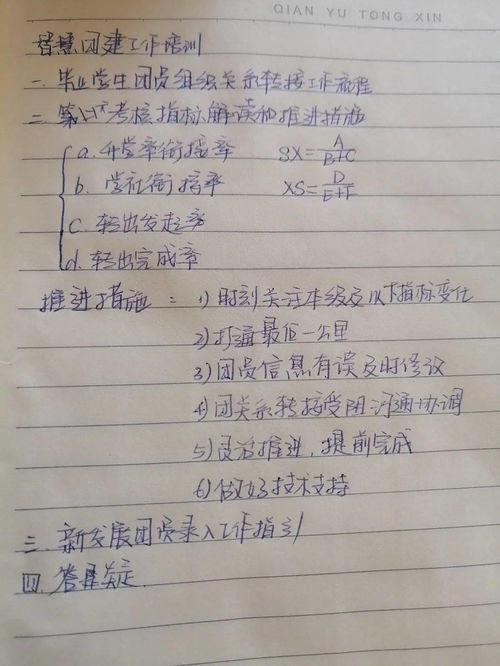 QIAN YU TONG XIN
智慧团建工作培训
一. 毕业学生团员组织关系转接工作流程
二. 考核指标解读和推进措施
a. 升学率衔接率 SX=A/(B+C)
b. 学社衔接率 XS=D/(E+F)
c. 转出发起率
d. 转出完成率
推进措施: 1) 时刻关注本级及以下指标变化
2) 打通最后一公里
3) 团员信息有误及时修改
4) 团关系转接受阻沟通协调
5) 推进, 提前完成
6) 做好技术支持
三. 新发展团员录入工作指引
四. 答疑